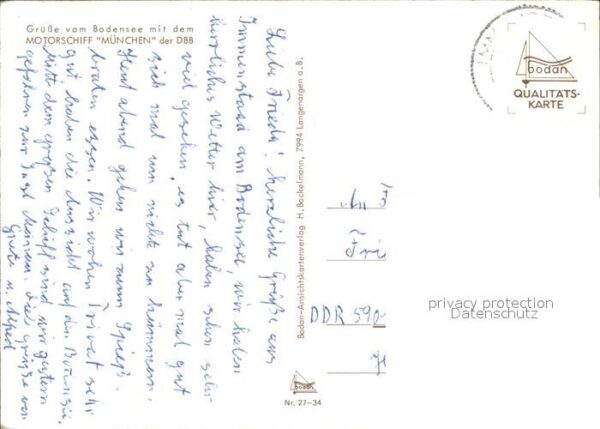 Grüße vom Bodensee mit dem
MOTORSCHIFF "MÜNCHEN" der DBB
Liebe Frieda! Herzliche Grüße aus
Immenstaad am Bodensee, wir haben
herrliches Wetter hier, haben schon sehr
viel gesehen, es tut aber mal gut
sich mal um nichts zu kümmern.
Heut abend gehen wir zum Spieß-
braten essen. Wir wohnen Privat sehr
gut, haben die Aussicht auf den Bodensee.
Mit dem großen Schiff sind wir gestern
gefahren zur Insel Meinau. Viele Grüße von
Grete u. Alfred
Bodan-Ansichtskartenverlag H. Bockelmann, 7994 Langenargen a. B.
bodan
Nr. 27-34
bodan
QUALITÄTS-
KARTE
An
Fra
Frie
DDR 590
privacy protection
Datenschutz